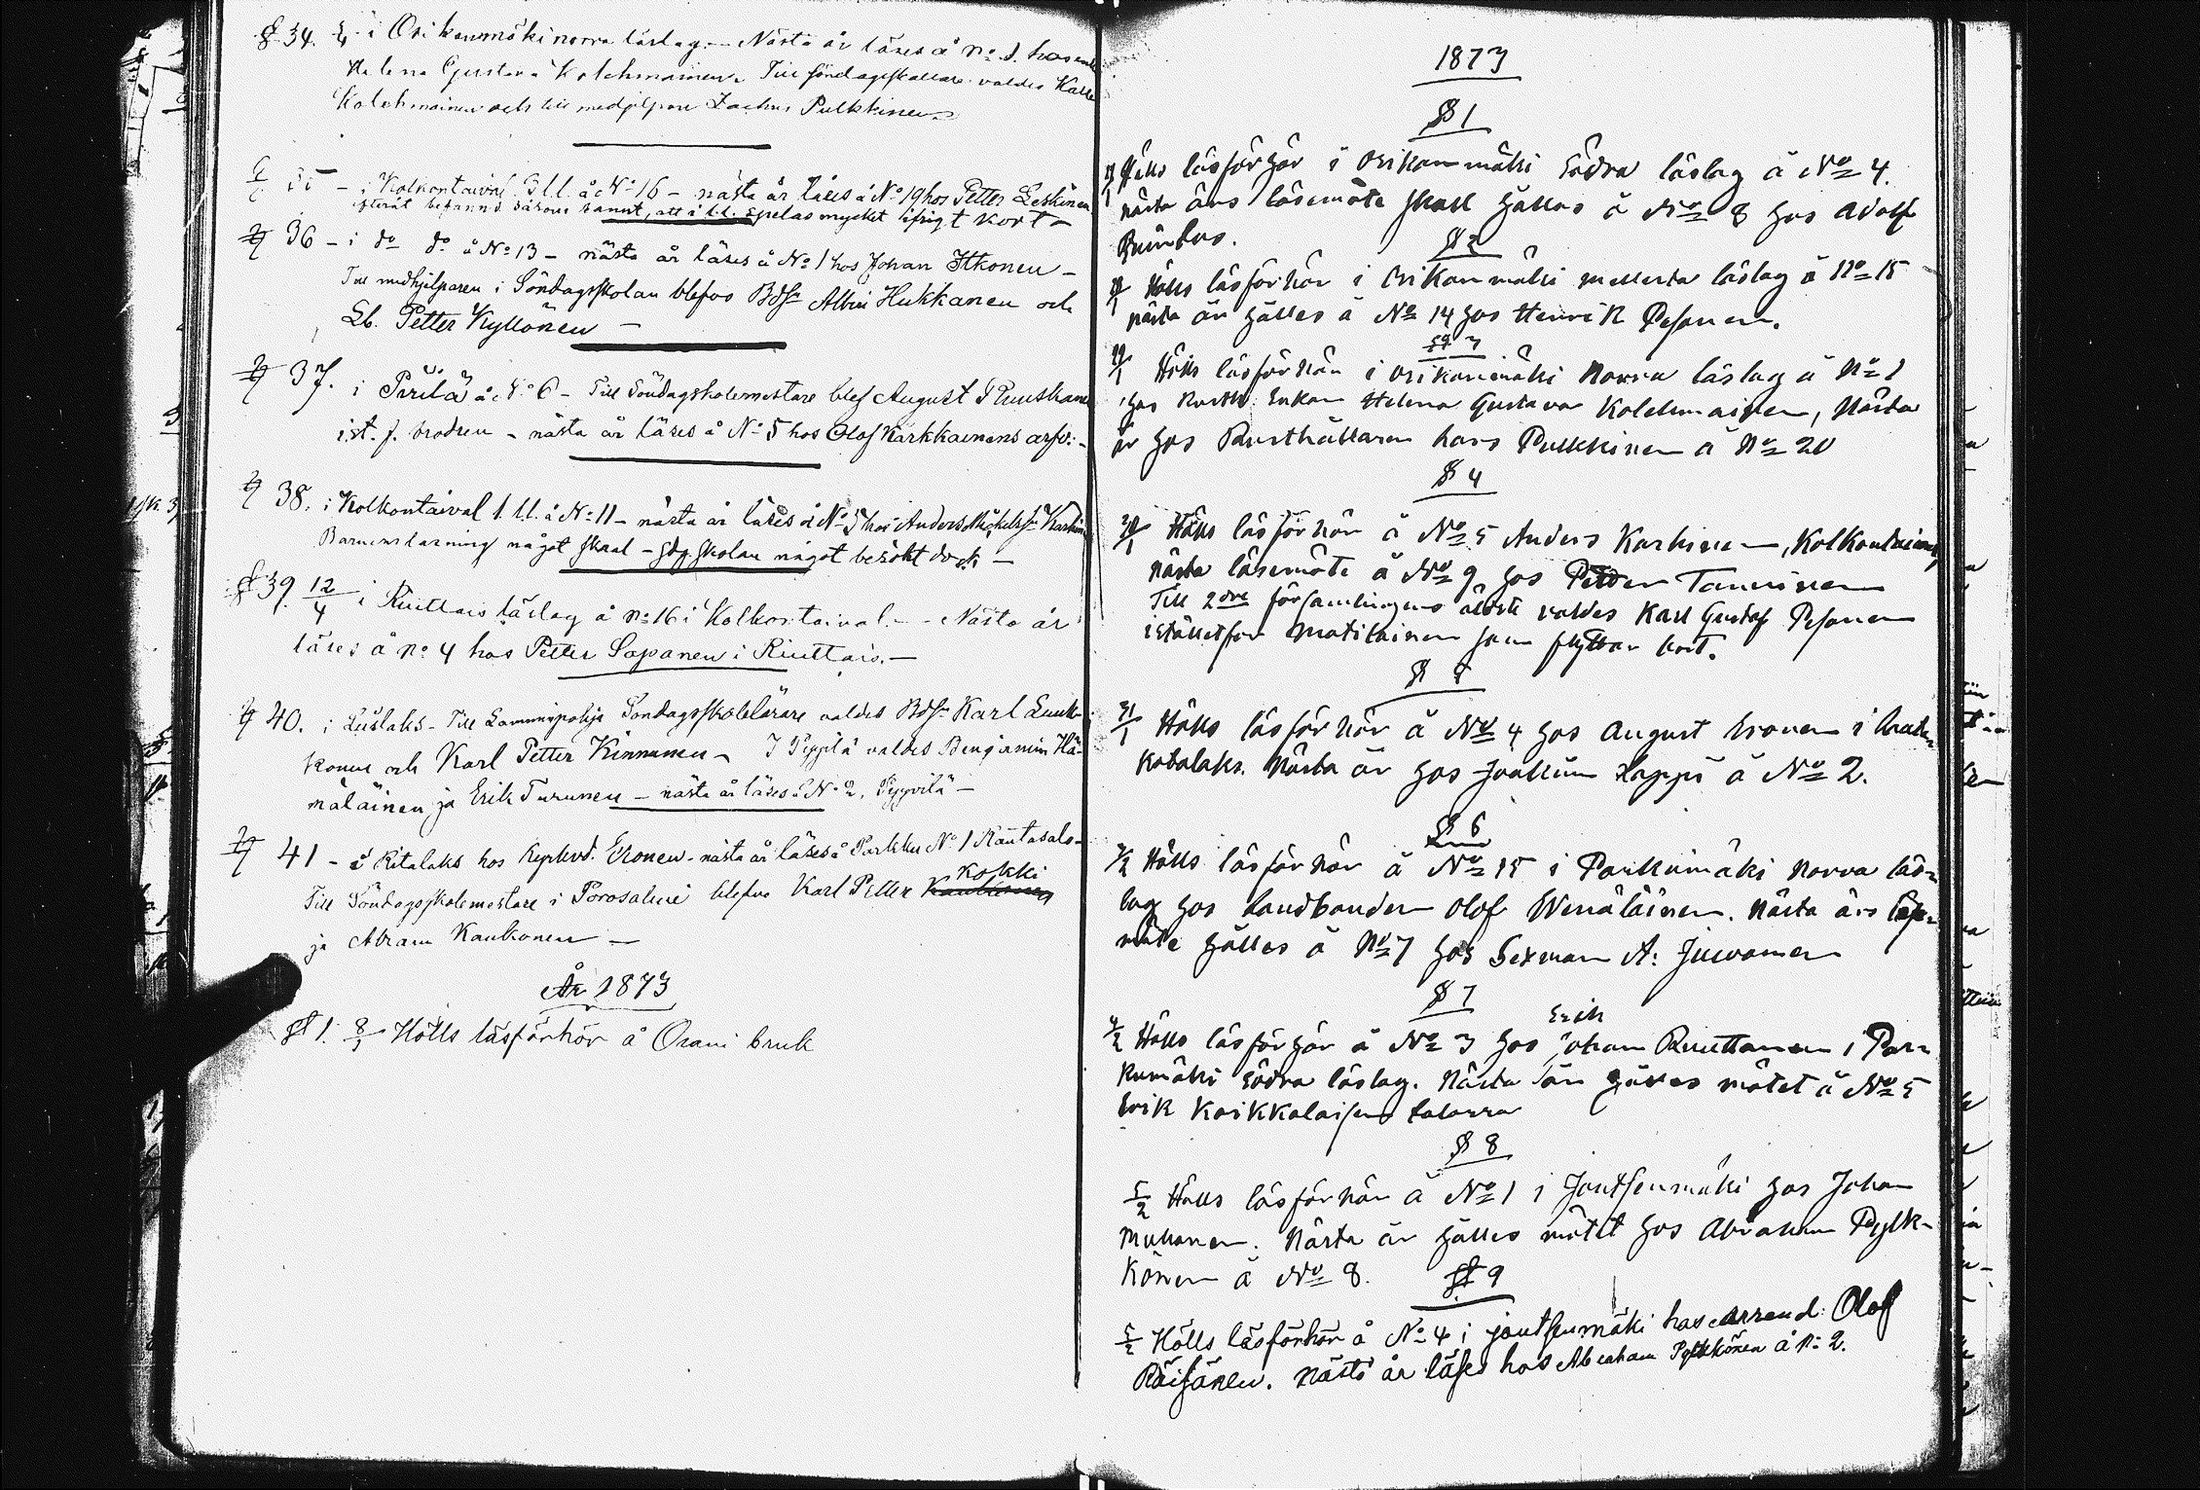 § 34. i Osikanmäki norra läslag. – Nästa år läses å No 1. hos
Helena Gustava Kolehmainen. Till söndagsskollärare valdes Kalle
Kolehmainen och till medhjelpare Zachus Pulkkinen.
35 – i Kolkontaival 3 l.l. å No 16 – nästa år läses å No 19 hos Petter Leskinen
efteråt befanns såsom sannt, att å l.l. spelas mycket ifrigt kort –
§ 36 – i do do å No 13 – nästa år läses å No 1 hos Johan Itkonen –
Till medhjelparen i Söndagsskolan blefvo Bds Albin Hukkanen och
Lb. Petter Kyllönen –
§ 37. i Pirilä å No 6 – Till Söndagskolemästare blef August Ruuskanen
ist. f. brodren – nästa år läses å No 5 hos Olof Kärkkäinens arfv: –
§ 38. i Kolkontaival 1. l.l. å No 11 – nästa år läses å No 5 hos Anders
Barnens läsning något skral – sdg.skolan något besökt dock –
§ 39. 12/4 i Ruuttais läslag å No 16 i Kolkontaival. – Nästa år
läses å No 4 hos Petter Sapanen i Ruuttais. –
§ 40. i Luislaks – Till Lamminpohja Söndagsskolelärare valdes Bds Karl
konen och Karl Petter Kinnunen – I Pyyvilä valdes Benjamin Hä-
mäläinen ja Erik Turunen – nästa år läses å No 2, Pyyvilä –
§ 41 – å Kitalaks hos Eronen – nästa år läses å Parkku No 1 Rautasalo –
Kokki
Till Söndagsskolemästare i Porosalmi blefvo Karl Petter
ja Abram Kaukonen –
År 1873
§ 1. 8/1 Hölls läsförhör å Oravi bruk
1873
§ 1
Hölls läsförhör i Osikanmäki Södra läslag å No 4.
nästa års läsemöte skall hållas å No 8 hos Adolf
§ 2
Hölls läsförhör i Osikanmäki mellersta läslag å No 15
nästa år hålles å No 14 hos Henrik Pesonen.
§ 3
Hölls läsförhör i Osikanmäki Norra läslag å No 1
hos Rusth. Enkan Helena Gustava Kolehmainen, Nästa
år hos Rusthållaren Lars Pulkkinen å No 20
§ 4
Hölls läsförhör å No 5 Anders Karhinen, Kolkontaival,
nästa läsemöte å No 9 hos Petter Tanninen
Till 2dre församlingens äldste valdes Karl Gustaf Pesonen
istället för Matilainen som flyttar bort.
§ 5
31/1 Hölls läsförhör å No 4 hos August Eronen i
Kotalaks. Nästa år hos Joakim Lappi å No 2.
§ 6
Hölls läsförhör å No 15 i Parkumäki Norra läs-
lag hos Landbonden Olof Wenäläinen. Nästa års läse-
möte hålles å No 7 hos Sexman A: Juvonen
§ 7
Erik
4/2 Hölls läsförhör å No 3 hos Johan Ruuttanen i Par-
kumäki Södra läslag. Nästa år hålles mötet å No 5
Erik Kaikkalaisen talossa
§ 8
5/2 Hölls läsförhör å No 1 i Joutsenmäki hos Johan
Muhonen. Nästa år hålles mötet hos Abraham Pylk-
könen å No 8.
§ 9
5/2 Hölls läsförhör å No 4 i Joutsenmäki hos arrend. Olof
Räisänen. Nästa år läses hos Abraham Pylkkönen å No 2.